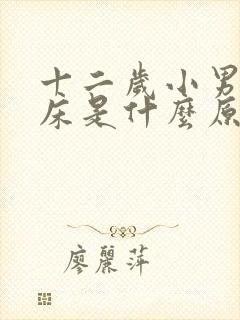 十二歲小男
床是什麼原
廖麗萍